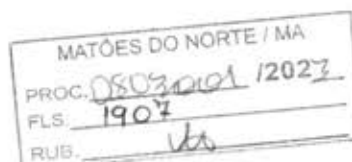 MATÕES DO NORTE / MA
PROC. 0803001 /2023
FLS. 1907
RUB.